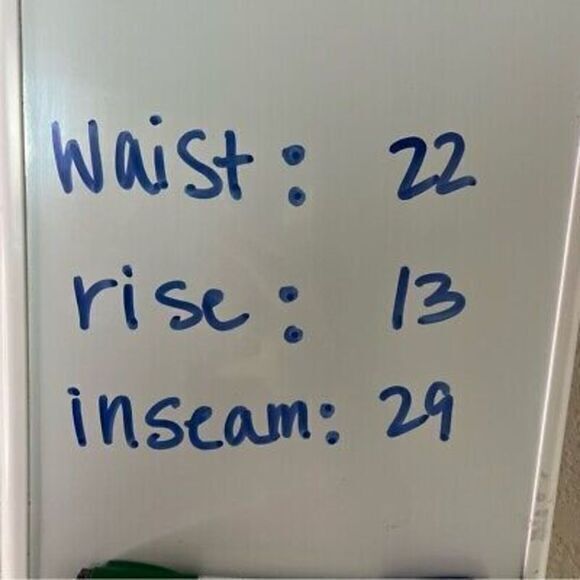 Waist: 22
rise: 13
inseam: 29